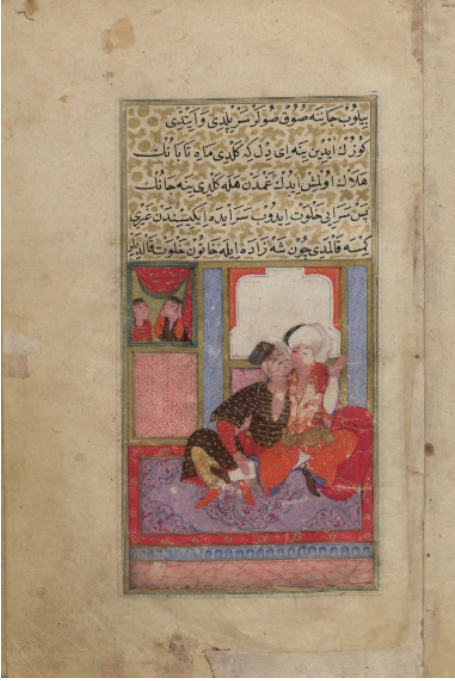 بیلوب جاننه صوق صولر سرپلدی و ایتدی
کوزك ایدین ینه ای دل که کلدی ماه تابانك
هلاك اولمش ایدك غمدن هله کلدی ینه جانك
پس سرایی خلوت ایدوب سرایده ایکیسندن غیری
کمسه قالمدی چون شه زاده ایله خاتون خلوت قالدیلر